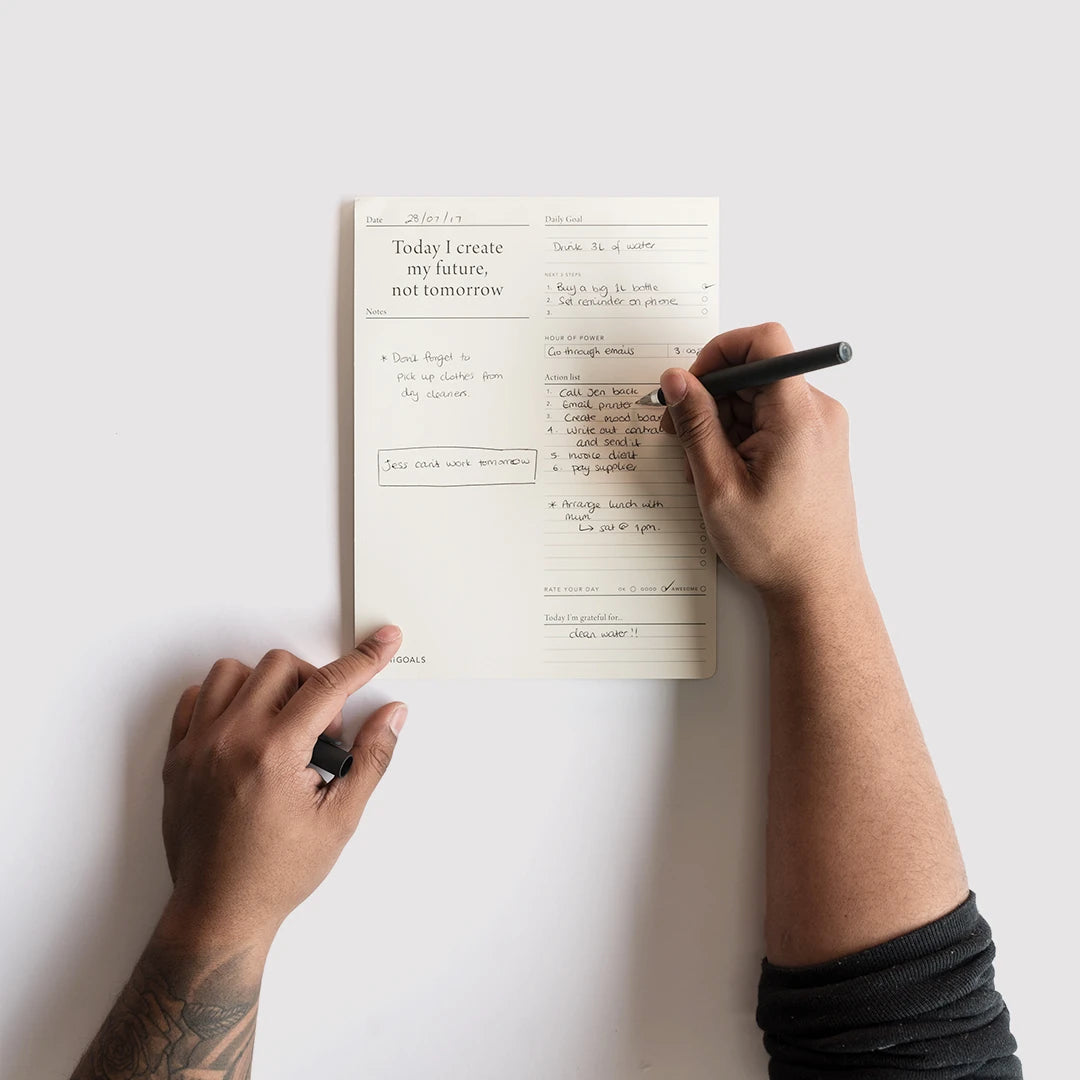 Date 28/07/17
Today I create
my future,
not tomorrow
Notes
* Don't forget to
pick up clothes from
dry cleaners.
Jess can't work tomorrow
GOALS
Daily Goal
Drink 3L of water
NEXT 3 STEPS
1. Buy a big 1L bottle
2. Set reminder on phone
3.
HOUR OF POWER
Go through emails 3:00
Action list
1. Call Jen back
2. Email printer
3. Create mood
4. Write out
and send it
5. invoice client
6. pay supplier
* Arrange lunch with
mum
↳ sat @ 1pm.
RATE YOUR DAY OK GOOD AWESOME
Today I'm grateful for...
clean water!!